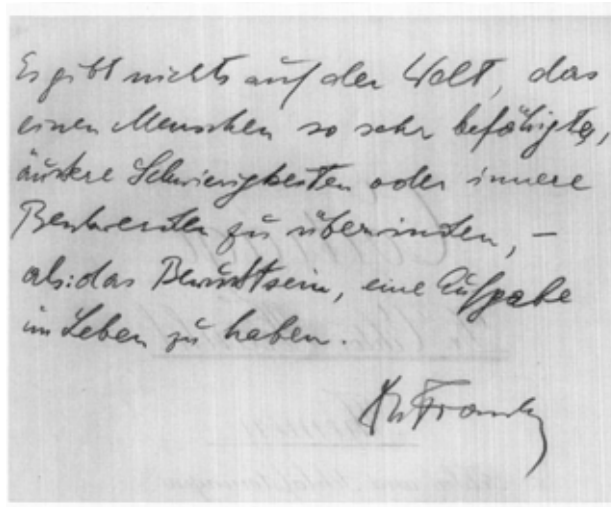 Es gibt nichts auf der Welt, das
einen Menschen so sehr befähigte,
äussere Schwierigkeiten oder innere
Beschwerden zu überwinden, –
als: das Bewusstsein, eine Aufgabe
im Leben zu haben.
Frankl